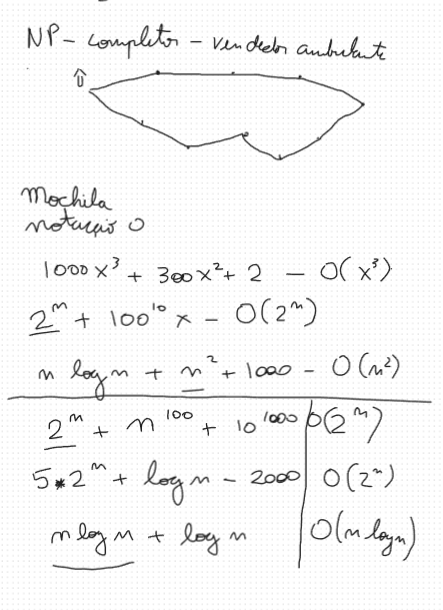 NP - completos - vendedor ambulante
Mochila
notação O
1000x³ + 300x² + 2 - O(x³)
2ⁿ + 100¹⁰x - O(2ⁿ)
n log n + n² + 1000 - O(n²)
2ⁿ + n¹⁰⁰ + 10¹⁰⁰⁰ | O(2ⁿ)
5*2ⁿ + log n - 2000 | O(2ⁿ)
n log n + log n | O(n log n)